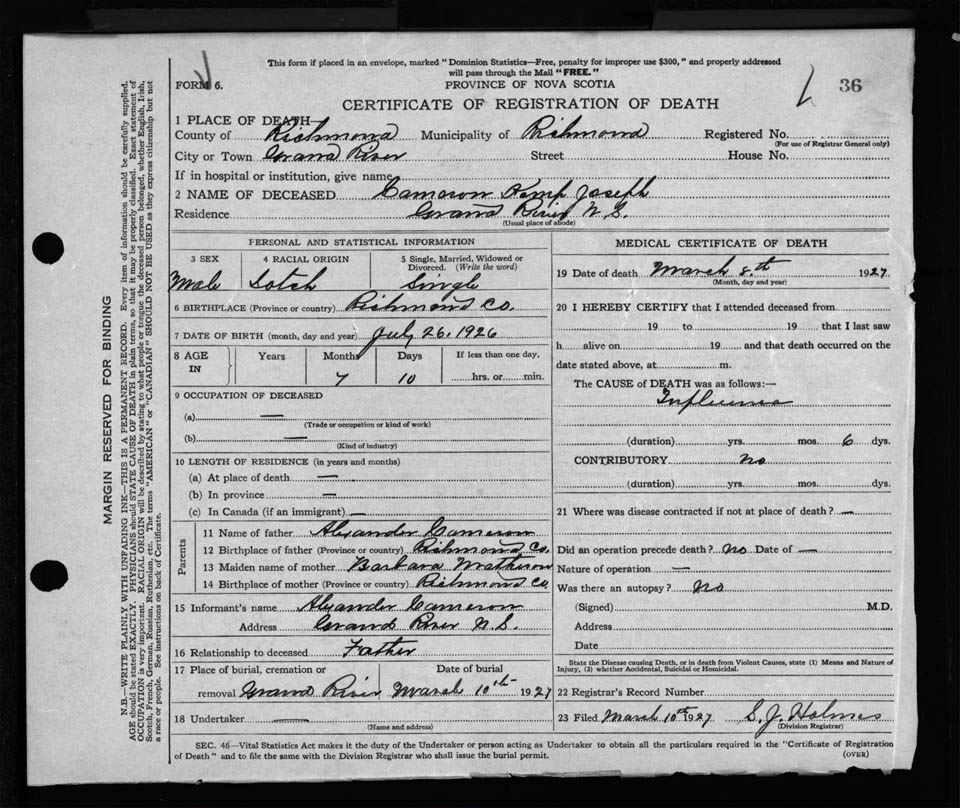 This form if placed in an envelope, marked "Dominion Statistics—Free, penalty for improper use $300," and properly addressed
will pass through the Mail "FREE."
FORM 6.
PROVINCE OF NOVA SCOTIA
36
CERTIFICATE OF REGISTRATION OF DEATH
1 PLACE OF DEATH
County of Richmond Municipality of Richmond Registered No.
(For use of Registrar General only)
City or Town Grand River Street House No.
If in hospital or institution, give name
2 NAME OF DECEASED Cameron Kemp Joseph
Residence Grand River N.S.
(Usual place of abode)
PERSONAL AND STATISTICAL INFORMATION
3 SEX 4 RACIAL ORIGIN 5 Single, Married, Widowed or Divorced. (Write the word)
Male Scotch Single
6 BIRTHPLACE (Province or country) Richmond Co.
7 DATE OF BIRTH (month, day and year) July 26, 1926
8 AGE IN Years Months Days If less than one day,
7 10 hrs. or min.
9 OCCUPATION OF DECEASED
(a) —
(Trade or occupation or kind of work)
(b) —
(Kind of industry)
10 LENGTH OF RESIDENCE (in years and months)
(a) At place of death —
(b) In province —
(c) In Canada (if an immigrant) —
Parents
11 Name of father Alexander Cameron
12 Birthplace of father (Province or country) Richmond Co.
13 Maiden name of mother Barbara Matheson
14 Birthplace of mother (Province or country) Richmond Co
15 Informant's name Alexander Cameron
Address Grand River N.S.
16 Relationship to deceased Father
17 Place of burial, cremation or Date of burial
removal Grand River March 10th 1927
18 Undertaker —
(Name and address)
MEDICAL CERTIFICATE OF DEATH
19 Date of death March 8.th 1927.
(Month, day and year)
20 I HEREBY CERTIFY that I attended deceased from
19 to 19 that I last saw
h alive on 19 and that death occurred on the
date stated above, at m.
The CAUSE of DEATH was as follows:—
Influenza
(duration) yrs. mos. 6 dys.
CONTRIBUTORY no
(duration) yrs. mos. dys.
21 Where was disease contracted if not at place of death? —
Did an operation precede death? no Date of —
Nature of operation —
Was there an autopsy? no
(Signed) M.D.
Address
Date
State the Disease causing Death, or in death from Violent Causes, state (1) Means and Nature of
Injury, (2) whether Accidental, Suicidal or Homicidal.
22 Registrar's Record Number
23 Filed March 10th 1927. S. J. Holmes
(Division Registrar)
SEC. 46—Vital Statistics Act makes it the duty of the Undertaker or person acting as Undertaker to obtain all the particulars required in the "Certificate of Registration
of Death" and to file the same with the Division Registrar who shall issue the burial permit.
(OVER)
MARGIN RESERVED FOR BINDING
N.B.—WRITE PLAINLY WITH UNFADING INK—THIS IS A PERMANENT RECORD. Every item of information should be carefully supplied.
AGE should be stated EXACTLY. PHYSICIANS should STATE CAUSE OF DEATH in plain terms, so that it may be properly classified. Exact statement of
OCCUPATION is very important. RACIAL ORIGIN will be described by stating to what people or tongue the deceased person belonged, whether English, Irish,
Scotch, French, German, Russian, Ruthenian, etc. The terms "AMERICAN" or "CANADIAN" SHOULD NOT BE USED as they express citizenship but not
a race or people. See instructions on back of Certificate.